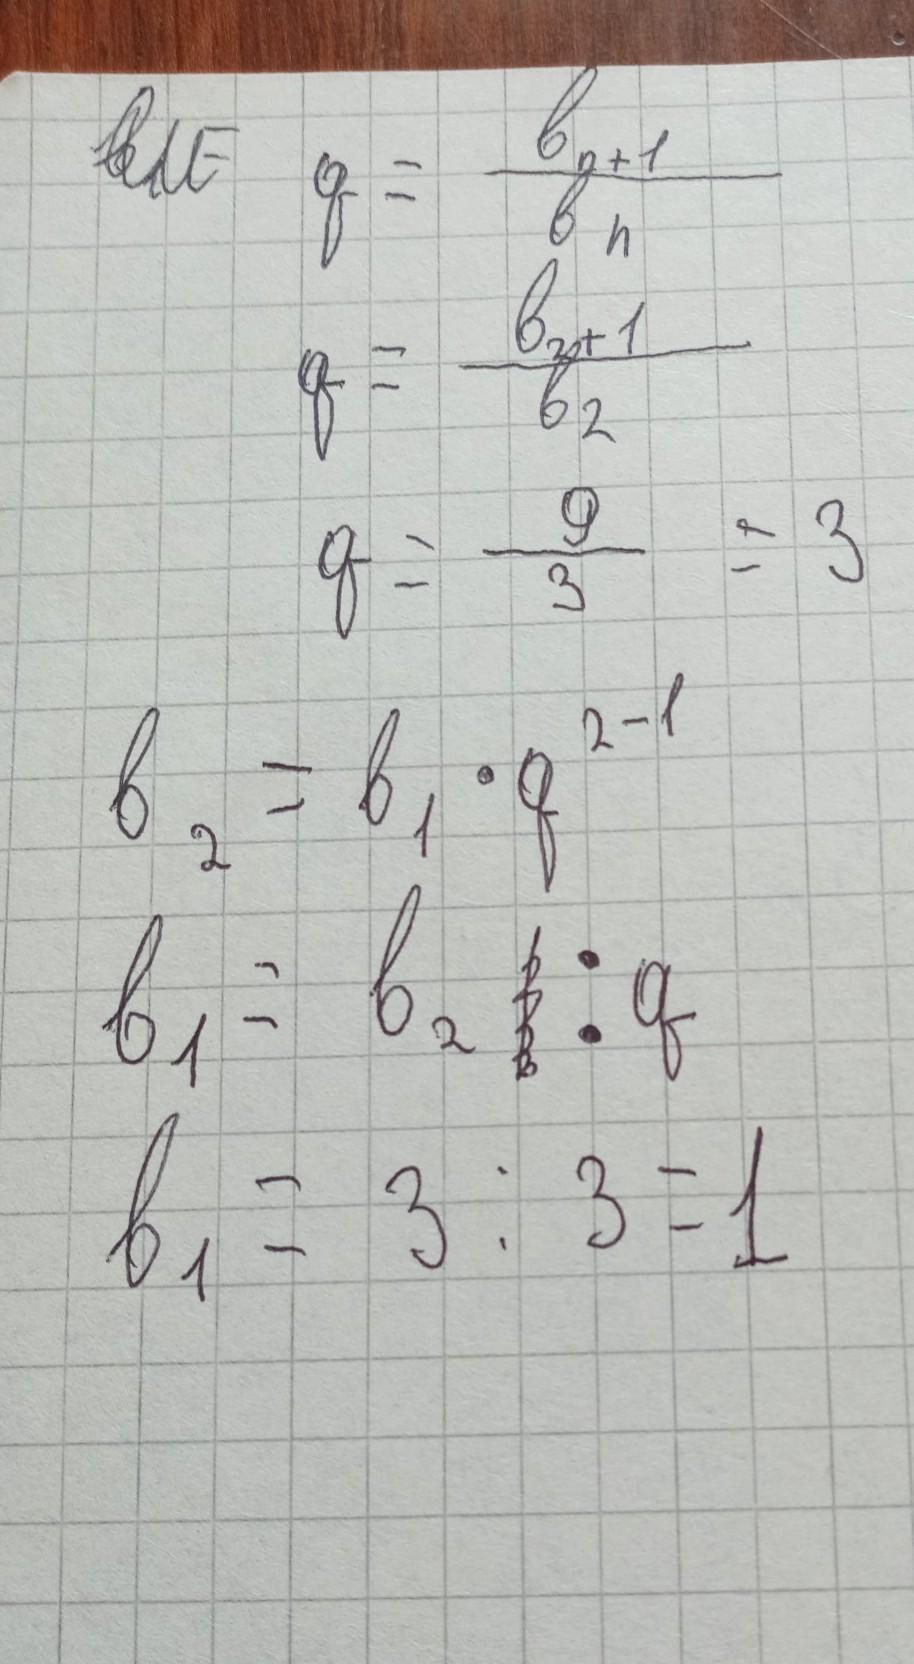 q = b_{n+1} / b_n
q = b_{2+1} / b_2
q = 9 / 3 = 3
b_2 = b_1 · q^{2-1}
b_1 = b_2 : q
b_1 = 3 : 3 = 1